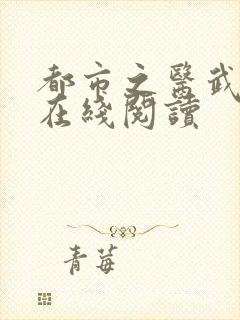 都市之醫武
在綫閱讀
青莓